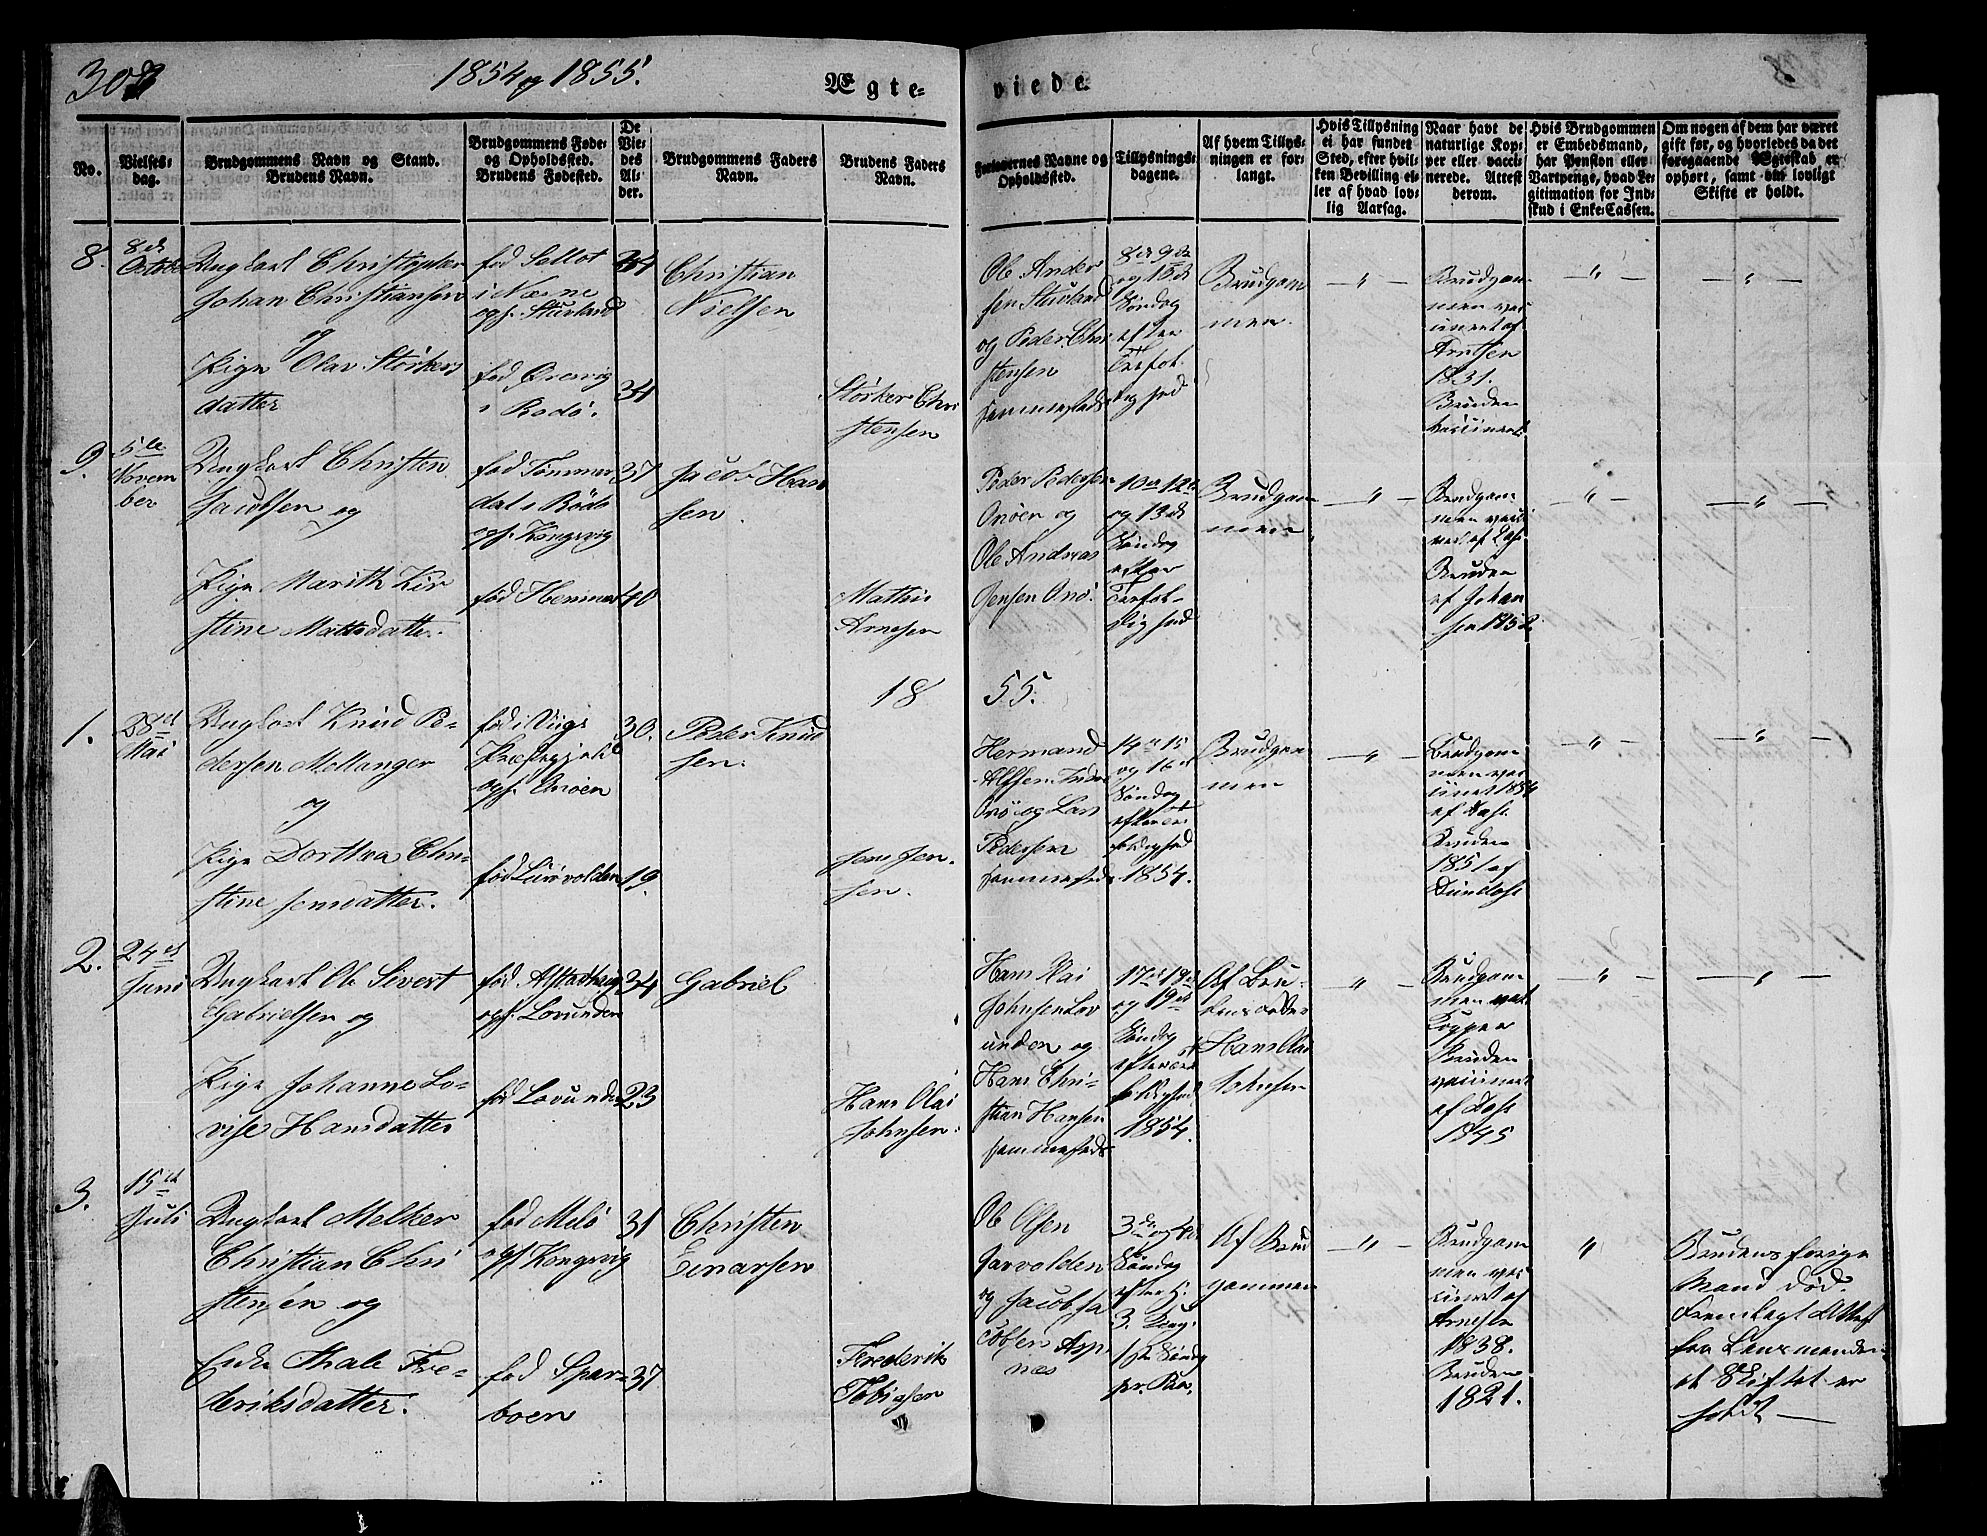 308
1854 og 1855.
Ægte=
viede.
No.
Vielses-
dag.
Brudgommens Navn og Stand.
Brudens Navn.
Brudgommens Føde-
og Opholdssted.
Brudens Fødested.
De
Vie-
des
Al-
der.
Brudgommens Faders
Navn.
Brudens Faders
Navn.
Forlovernes Navne og
Opholdssted.
Tillysnings-
dagene.
Af hvem Tillys-
ningen er for-
langt.
Hvis Tillysning
ei har fundet
Sted, efter hvil-
ken Bevilling el-
ler af hvad lov-
lig Aarsag.
Naar havt de
naturlige Kop-
per eller vacci-
nerede. Attest
derom.
Hvis Brudgommen
er Embedsmand,
har Pension eller
Vartpenge, hvad Le-
gitimation for Ind-
skud i Enke-Cassen.
Om nogen af dem har været
gift før, og hvorledes da det
foregaaende Egteskab er
ophørt, samt om lovligt
Skifte er holdt.
8.
8de
October
Ungkarl Christopher
Johan Christiansen
og
Pige Olav Størkers
datter
fød
i Næsne
ops. Stuvland
fød
i Rødø.
34
34
Christian
Nielsen
Størker Chri
stensen
Ole Ander
sen Stuvland
og Peder Chri
stensen
sammesteds
8de 9de
og 10de
Søndag
efter
Trefol-
dighed
Brudgom
men.
Brudgom
men vac
cineret af
Arntsen
1831.
Bruden
vaccineret
9.
5te
Novem
ber
Ungkarl Christen
Jacobsen og
Pige Marith Kir
stine Mathisdatter.
fød Tømmer
dal i Rødø
ops. Kongsvig
fød Hemnes
37
40
Jacob Han
sen.
Mathis
Arnesen
Peder Pedersen
Onøen og
Ole Andreas
Jensen Onø.
10de 12de
og 13de
Søndag
efter
Trefol-
dighed
Brudgom
men
Bruden
af Johan
sen 1852
1855.
1.
28de
Mai
Ungkarl Knud Pe-
dersen Mellanger
og
Pige Dorthea Chri-
stine Jensdatter.
fød i Viigs
Præstegjeld
ops. Onøen
fød Lurvolden
30.
19.
Peder Knud
sen.
Jens Jen-
sen.
Hermand
Onø og Lars
Pedersen
sammesteds
14de 15
og 16de
Søndag
efter Tre
foldighed
1854.
Brudgom
men
Brudgom
men vac
cineret 1834
af Dass.
Bruden
1851 af
2.
24de
Juni
Ungkarl Ole Sivert
Gabrielsen og
Pige Johanne Lo-
vise Hansdatter
fød Alstadhaug
ops. Lovunden
fød Lovunden
34
23
Gabriel
Hans Olai
Johnsen.
Hans Olai
Johnsen Lov
unden og
Hans Chri-
stian Hansen
sammesteds
17de 18de
og 19de
Søndag
efter Tre
foldighed
1854.
Af Bru-
dens Fader
Hans Olai
Johnsen
Brudgom
men havt
Kopper
Bruden
vaccineret
af Dass
1845
3.
15de
Juli
Ungkarl Melker
Christian Chri
stensen og
Enke Thale Fre-
deriksdatter.
fød Melø
ops. Kongsvig
fød Spar-
boen
31
37
Christen
Einarsen
Frederik
Tobiasen
Ole Olsen
Jarvolden
og Jacob Ja
cobsen Asp-
næs
3de og 4de
Søndag
efter H.
3 Kong.
1ste Søndag
Af Brud
gommen
Brudgom
men vac
cineret af
Arnesen
1838.
Bruden
1821.
Brudens forige
Mand død.
Fremlagt Attest
fra Lensmanden
at Skiftet er
holdt